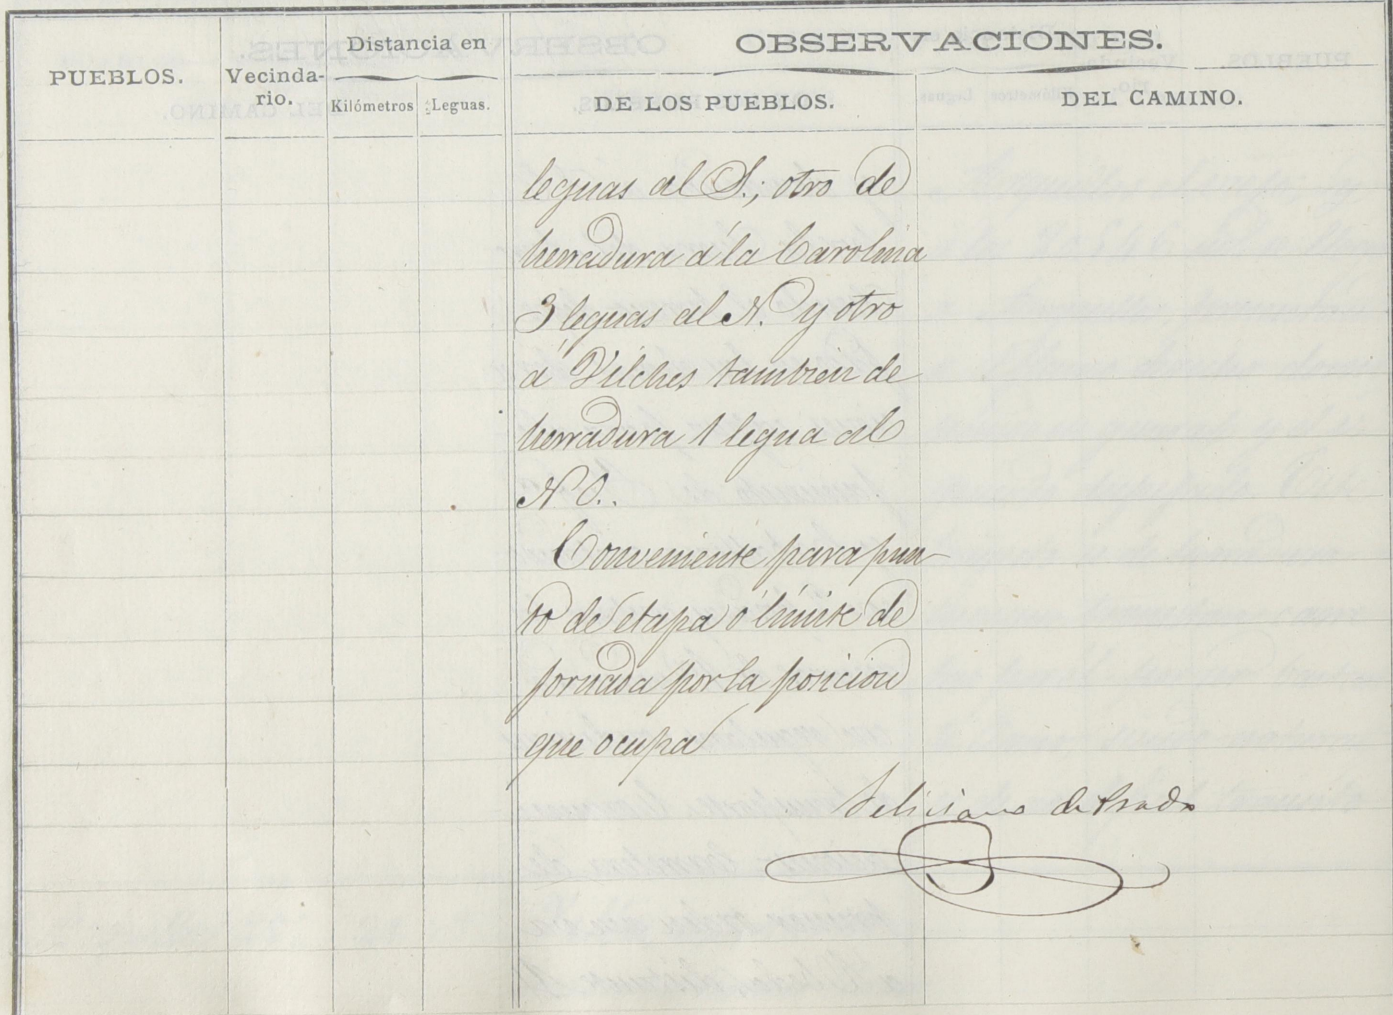 PUEBLOS.
Vecinda-
rio.
Distancia en
Kilómetros
Leguas.
OBSERVACIONES.
DE LOS PUEBLOS.
DEL CAMINO.
leguas al S.; otro de
herradura á la Carolina
3 leguas al N. y otro
á Vilches tambien de
herradura 1 legua al
N O..
Conveniente para pun-
to de etapa ó límite de
jornada por la posicion
que ocupa
Feliciano de Prado